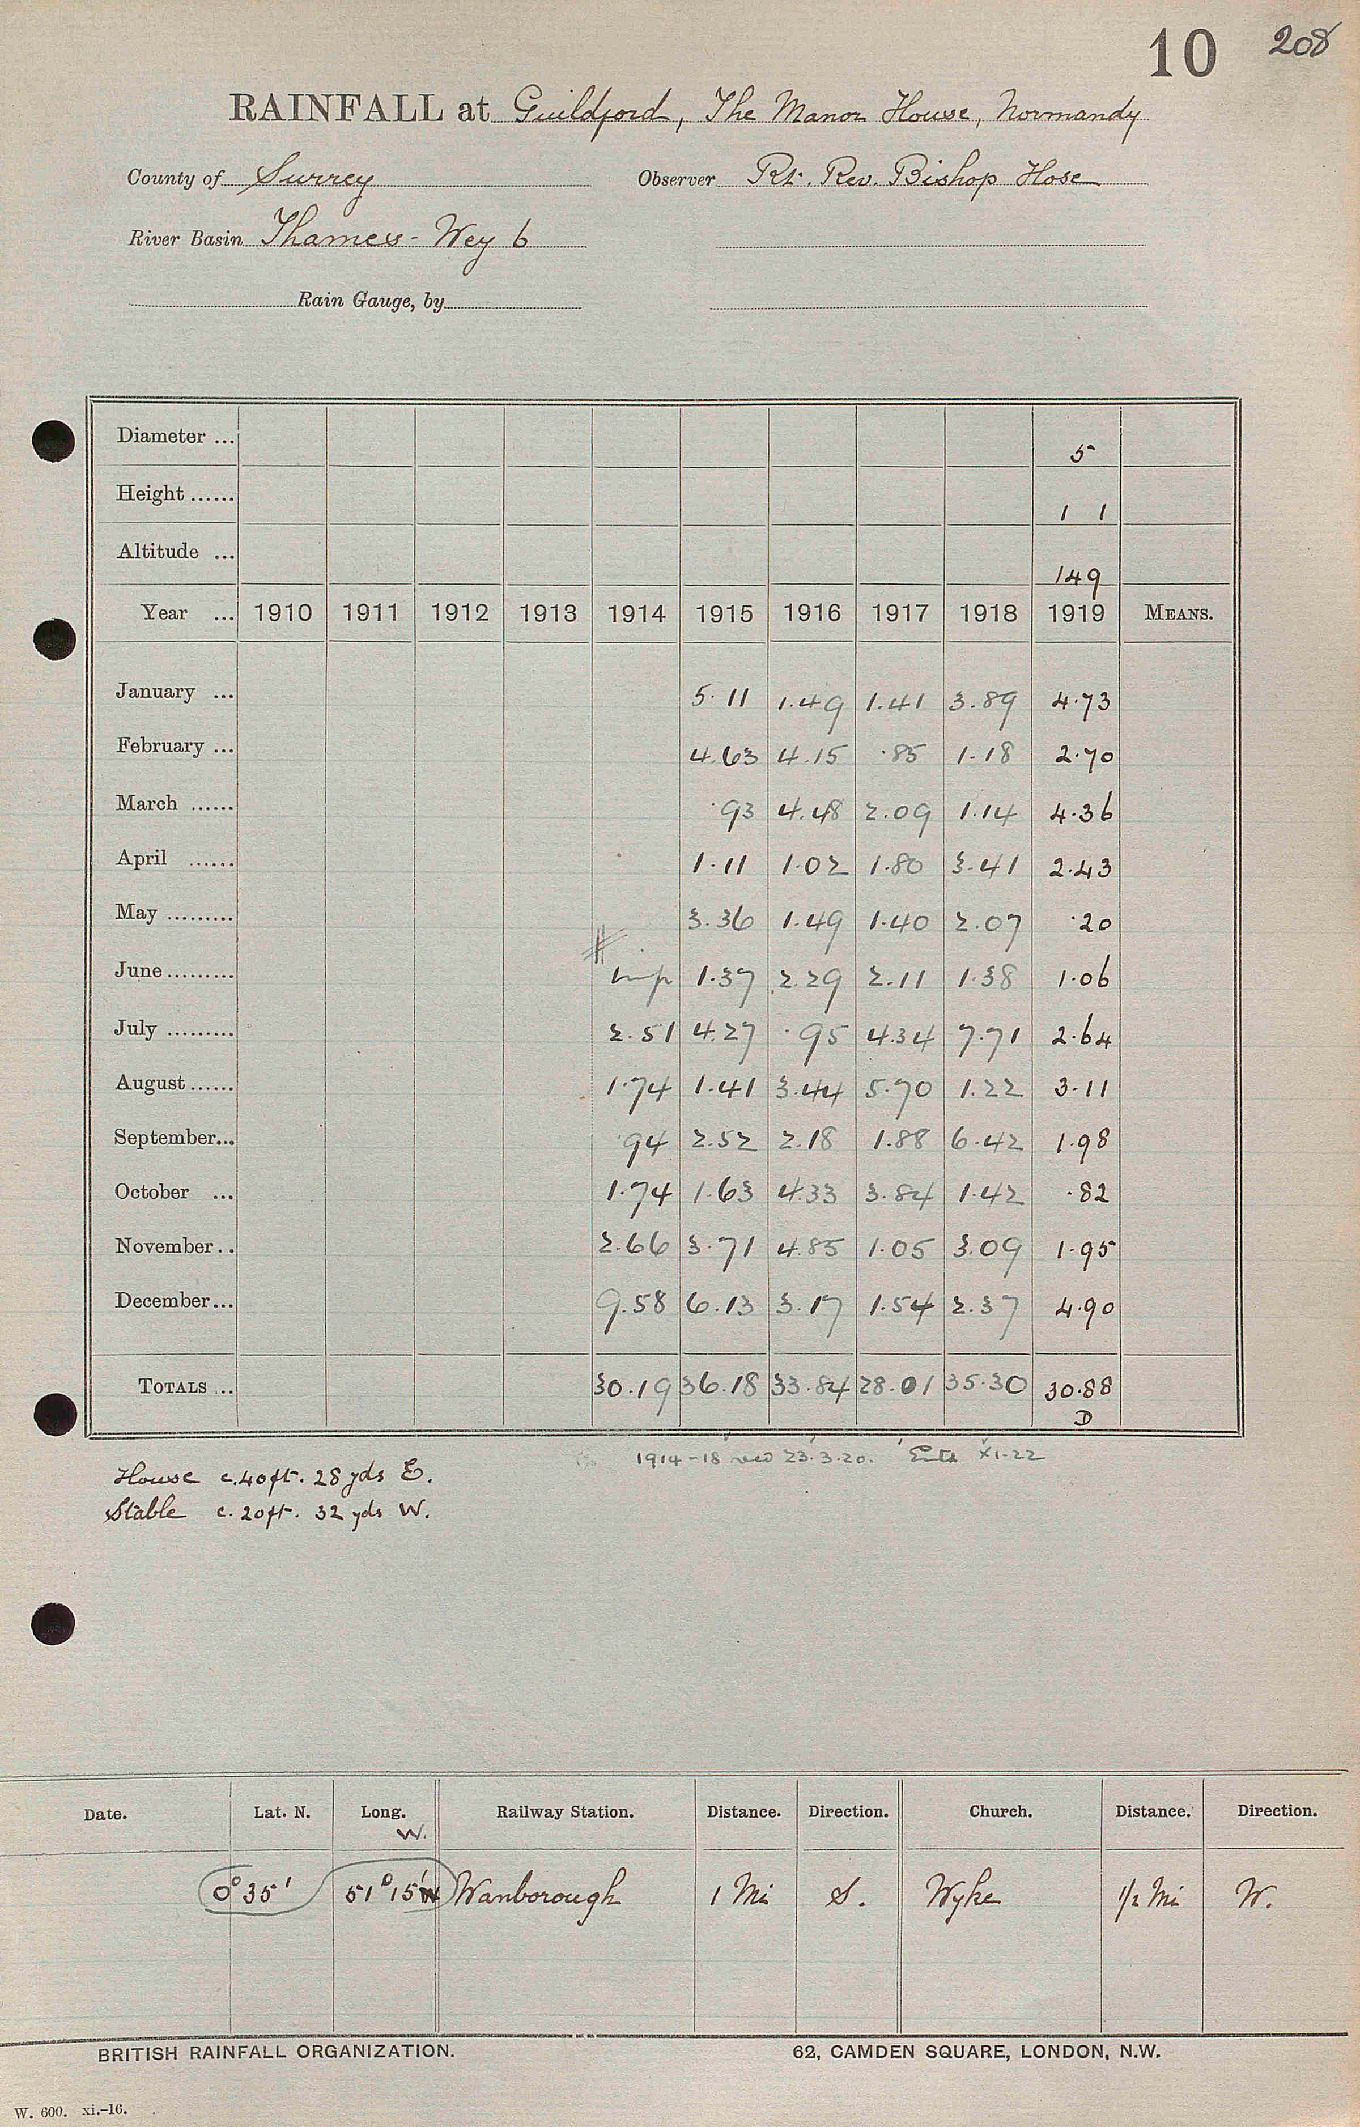 10 208
RAINFALL at Guildford, The Manor House, Normandy
County of Surrey Observer Rt. Rev. Bishop Hose
River Basin Thames - Wey 6
Rain Gauge, by
Diameter ... 5
Height ...... 1 1
Altitude ... 149
Year ... 1910 1911 1912 1913 1914 1915 1916 1917 1918 1919 MEANS.
January ... 5.11 1.49 1.41 3.89 4.73
February ... 4.63 4.15 .85 1.18 2.70
March ...... .93 4.48 2.09 1.14 4.36
April ...... 1.11 1.02 1.80 3.41 2.43
May ......... 3.36 1.49 1.40 2.07 .20
June ......... imp 1.37 2.29 2.11 1.38 1.06
July ......... 2.51 4.27 .95 4.34 7.71 2.64
August ...... 1.74 1.41 3.44 5.70 1.22 3.11
September... .94 2.52 2.18 1.88 6.42 1.98
October ... 1.74 1.63 4.33 3.84 1.42 .82
November .. 2.66 3.71 4.85 1.05 3.09 1.95
December... 9.58 6.13 3.17 1.54 2.37 4.90
TOTALS ... 30.19 36.18 33.84 28.01 35.30 30.88
D
1914-18 recd 23.3.20. XI-22
House c.40ft. 28 yds E.
Stable c. 20ft. 32 yds W.
Date. Lat. N. Long. Railway Station. Distance. Direction. Church. Distance. Direction.
W.
0° 35' 51° 15' W Wanborough 1 Mi S. Wyke 1/2 Mi W.
BRITISH RAINFALL ORGANIZATION. 62, CAMDEN SQUARE, LONDON, N.W.
W. 600. xi.-16.